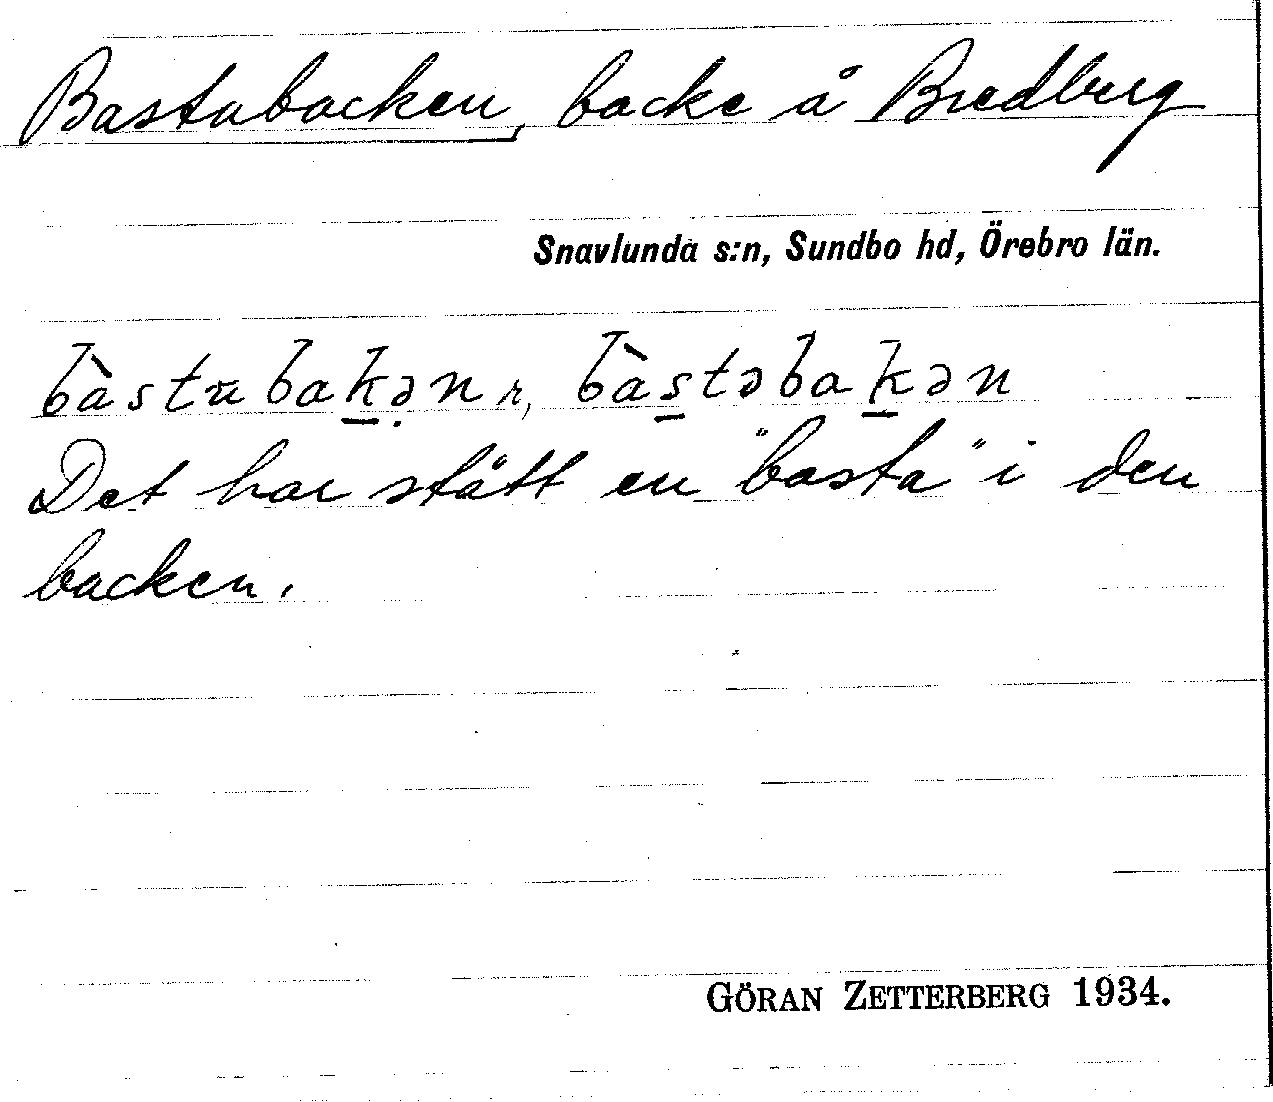 Bastubacken, backe å Bredberg
Snavlunda s:n, Sundbo hd, Örebro län.
bàstubak̠ə̣n r, bàs̠təbak̠ən
Det har stått en "basta" i den
backen.
GÖRAN ZETTERBERG 1934.